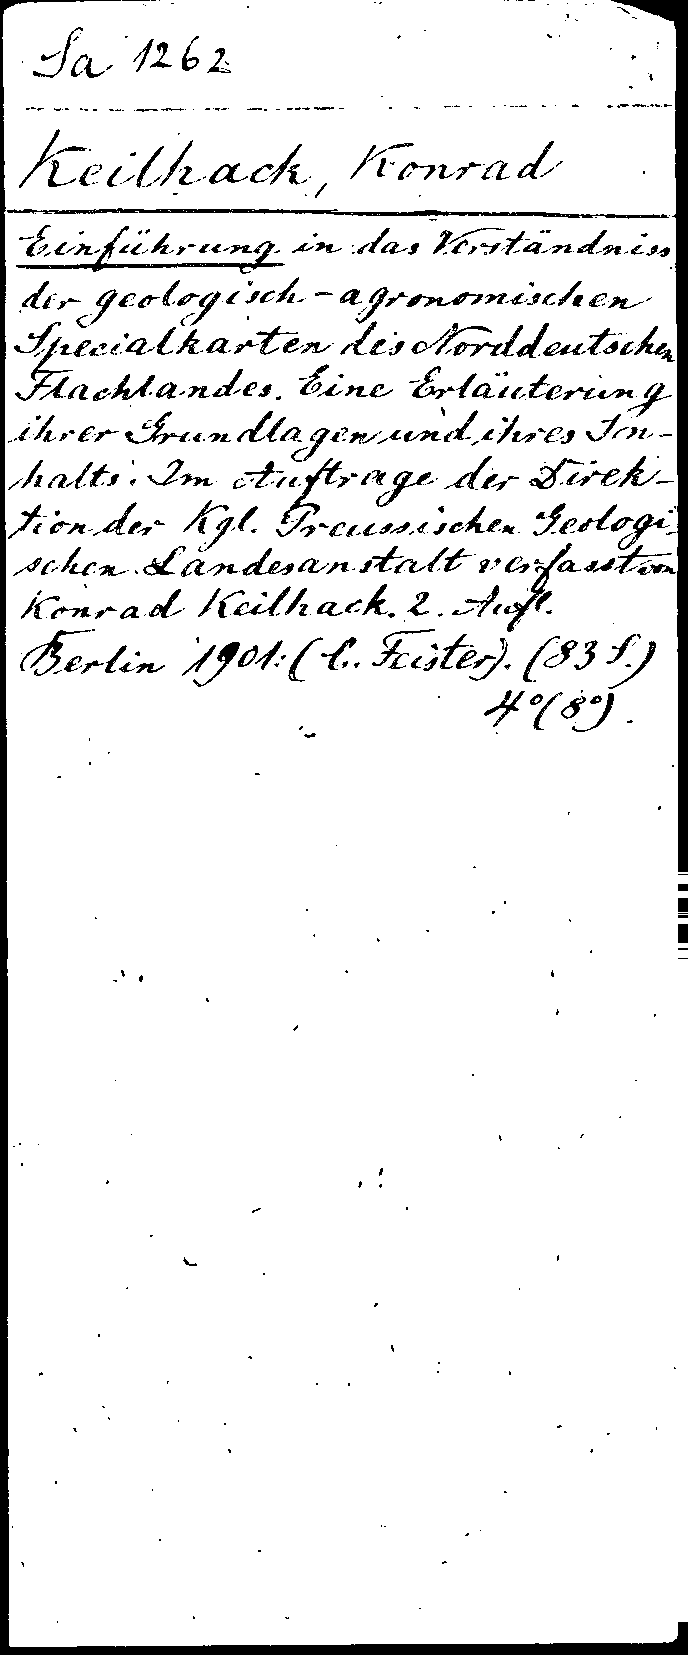 Sa 1262
Keilhack, Konrad
Einführung in das Verständniss
der geologisch-agronomischen
Specialkarten des Norddeutschen
Flachlandes. Eine Erläuterung
ihrer Grundlagen und ihres In-
halts. Im Auftrage der Direk-
tion der Kgl. Preussischen Geologi-
schen Landesanstalt verfasst von
Konrad Keilhack. 2. Aufl.
Berlin 1901: (C. Feister). (83 S.)
4°(8°).